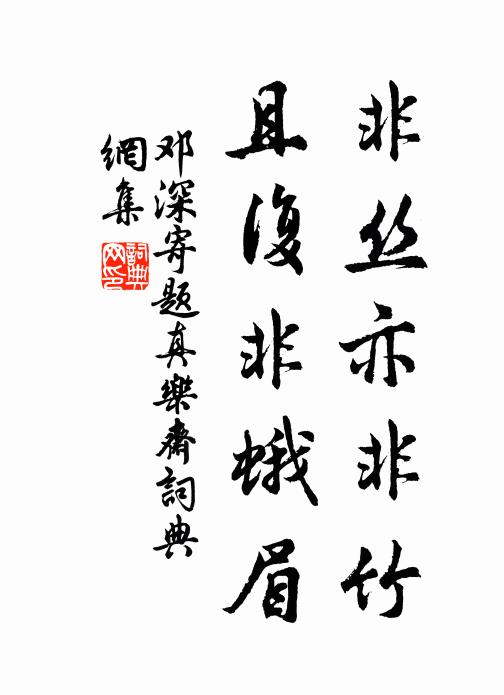 非丝亦非竹
且復非蛾眉
邓深寄题真樂齋詞典
網集
詞典
网印